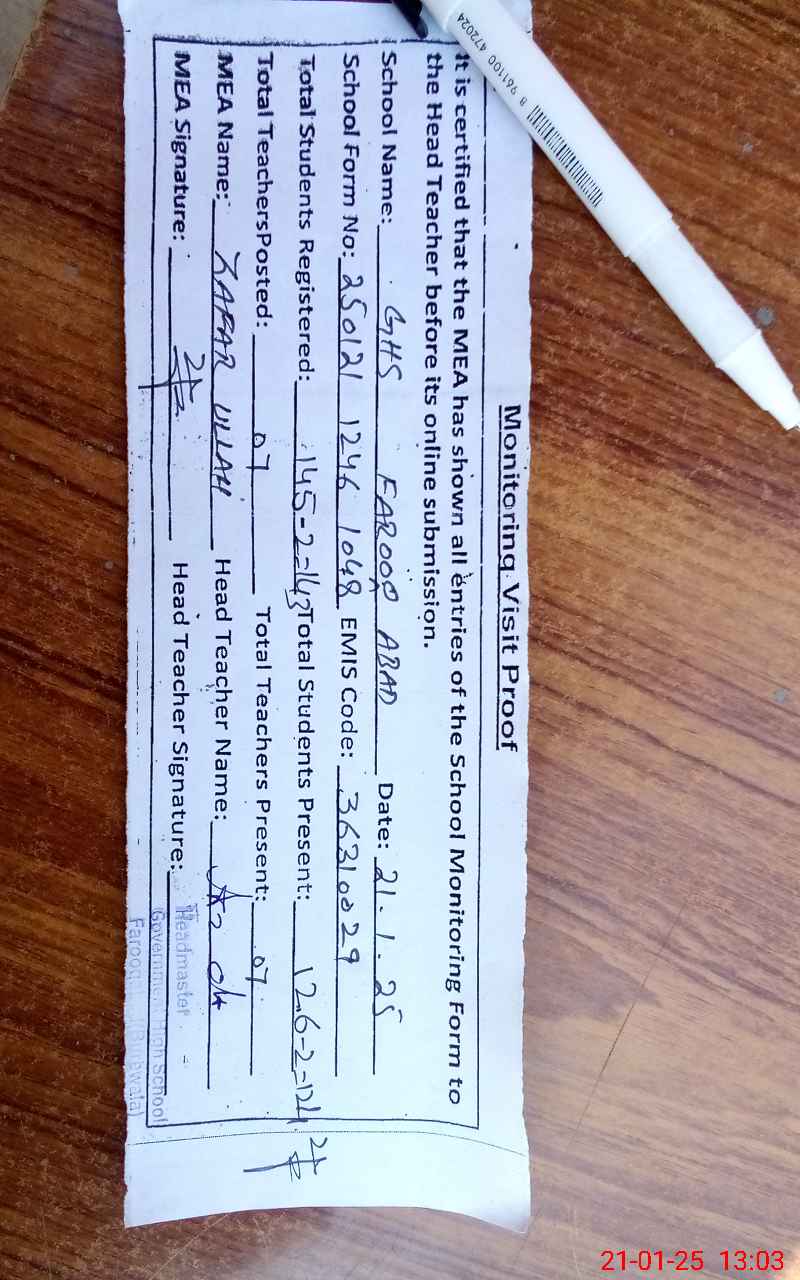 Monitoring Visit Proof
It is certified that the MEA has shown all entries of the School Monitoring Form to
the Head Teacher before its online submission.
School Name: GHS FAROOQ ABAD Date: 21.1.25
School Form No: 250121 1246 1048 EMIS Code: 36310029
Total Students Registered: 145-2=143 Total Students Present: 126-2=124
Total TeachersPosted: 07 Total Teachers Present: 07
MEA Name: ZAFAR ULLAH Head Teacher Name:
MEA Signature: Head Teacher Signature:
Headmaster
Government High School
8 961100 472024
21-01-25 13:03